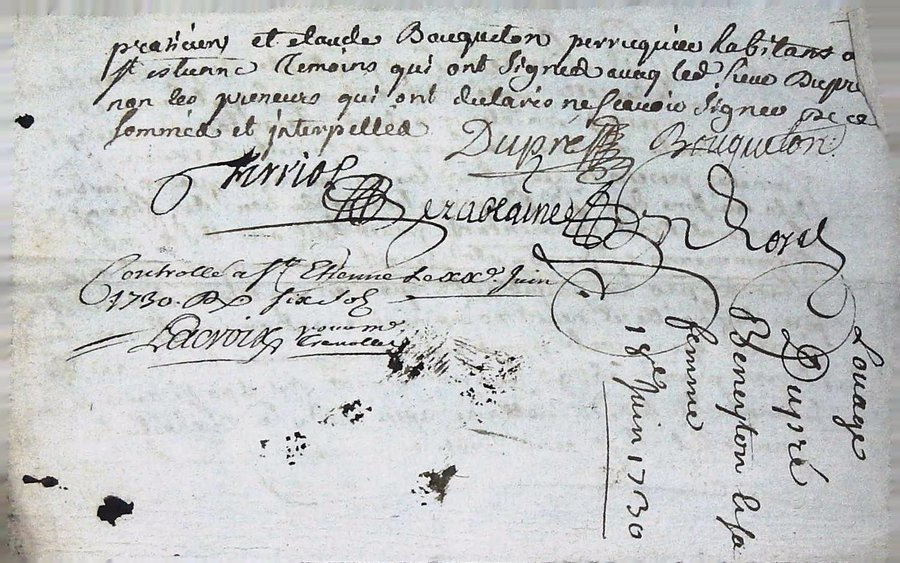 praticiens et claude Bouqueton perruquier habitans a
St estienne Temoins qui ont signed avaq led sieur Dupré
non les preneurs qui ont declarés ne scavoir signer De ce
sommés et interpelled
Dupré Bouqueton
Controllé a St Etienne Le xxe Juin
1730. Rx six sols
Lacroix
Louage
Dupré
Beneyton & sa
femme
18e Juin 1730